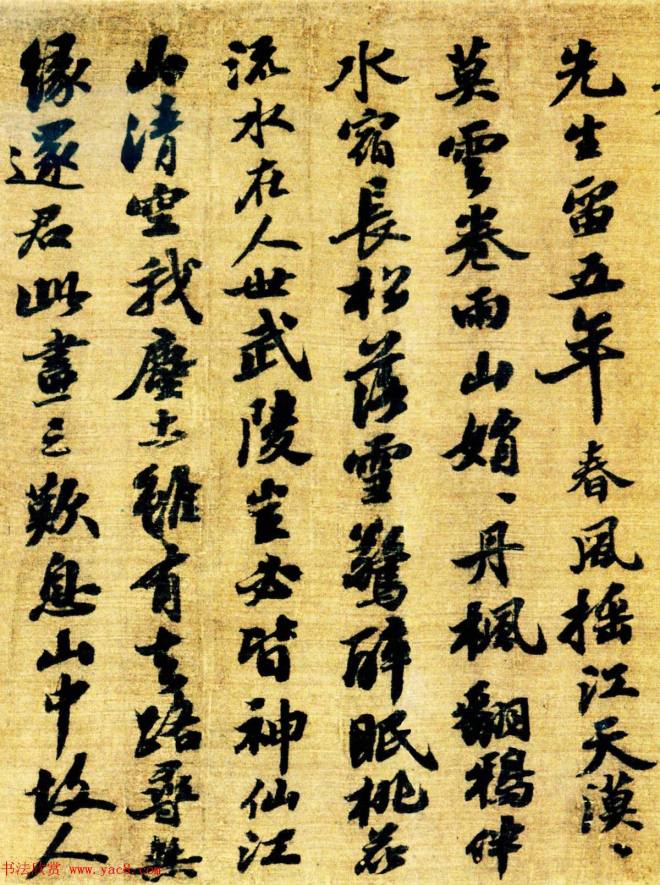 先生留五年春風摇江天漠、
莫雲卷雨山娟、丹楓翻鵶伴
水宿長松落雪驚醉眠桃花
流水在人世武陵豈必皆神仙江
山清空我塵土雖有去路尋無
緣還君此畫三歎息山中故人
书法欣赏 www.yac8.com